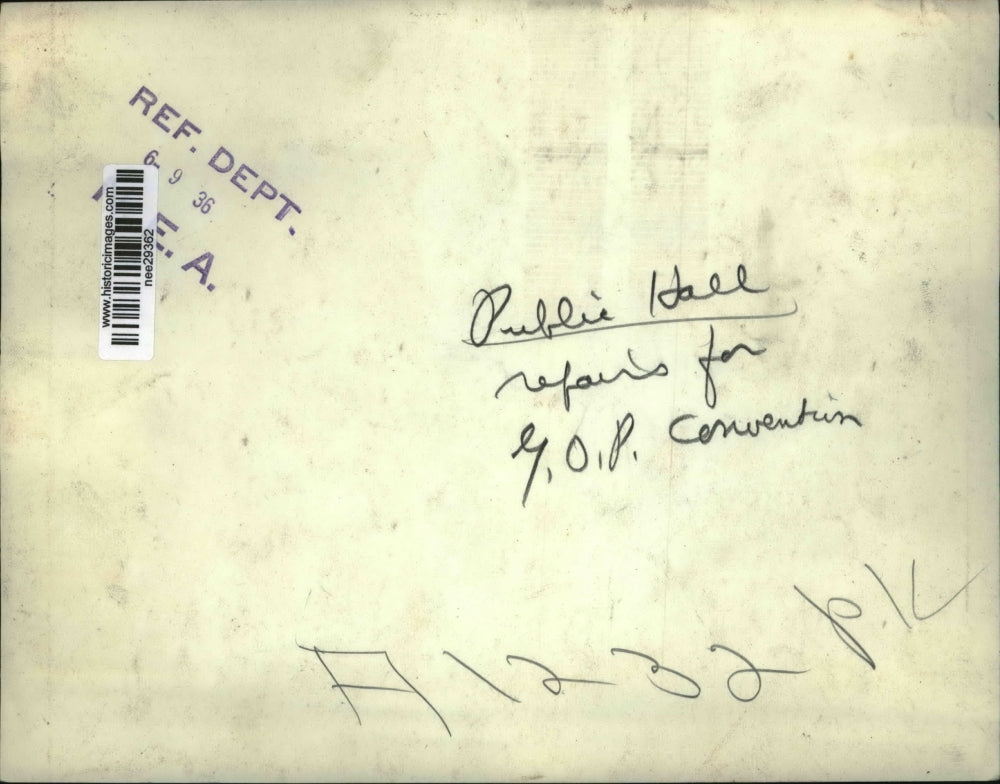 REF. DEPT.
6 9 36
E. A.
www.historicimages.com
nee29362
Public Hall
repairs for
G.O.P. Convention
A1232 PK